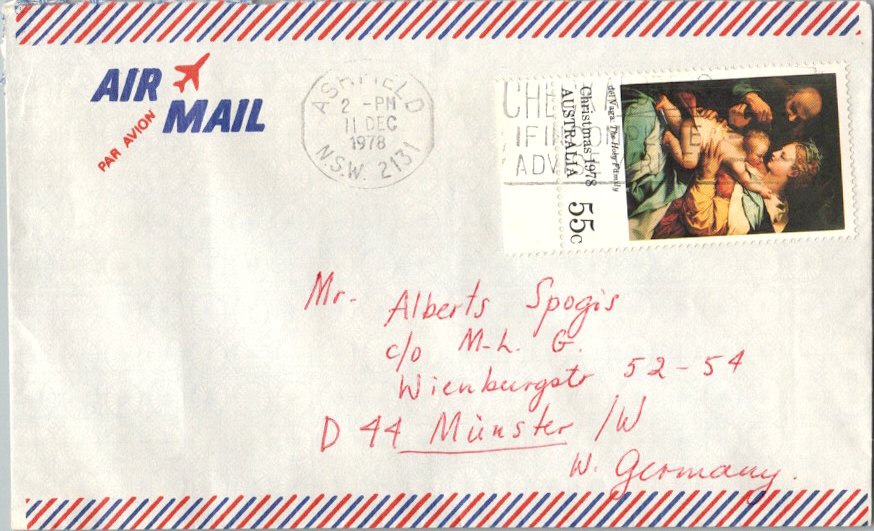 AIR
MAIL
PAR AVION
ASHFIELD
2 -PM
11 DEC
1978
N.S.W. 2131
del Vaga, The Holy Family
Christmas 1978
AUSTRALIA
55c
IF
ADV
Mr. Alberts Spogis
c/o M-L. G.
Wienburgstr 52-54
D 44 Münster /W
W. Germany.